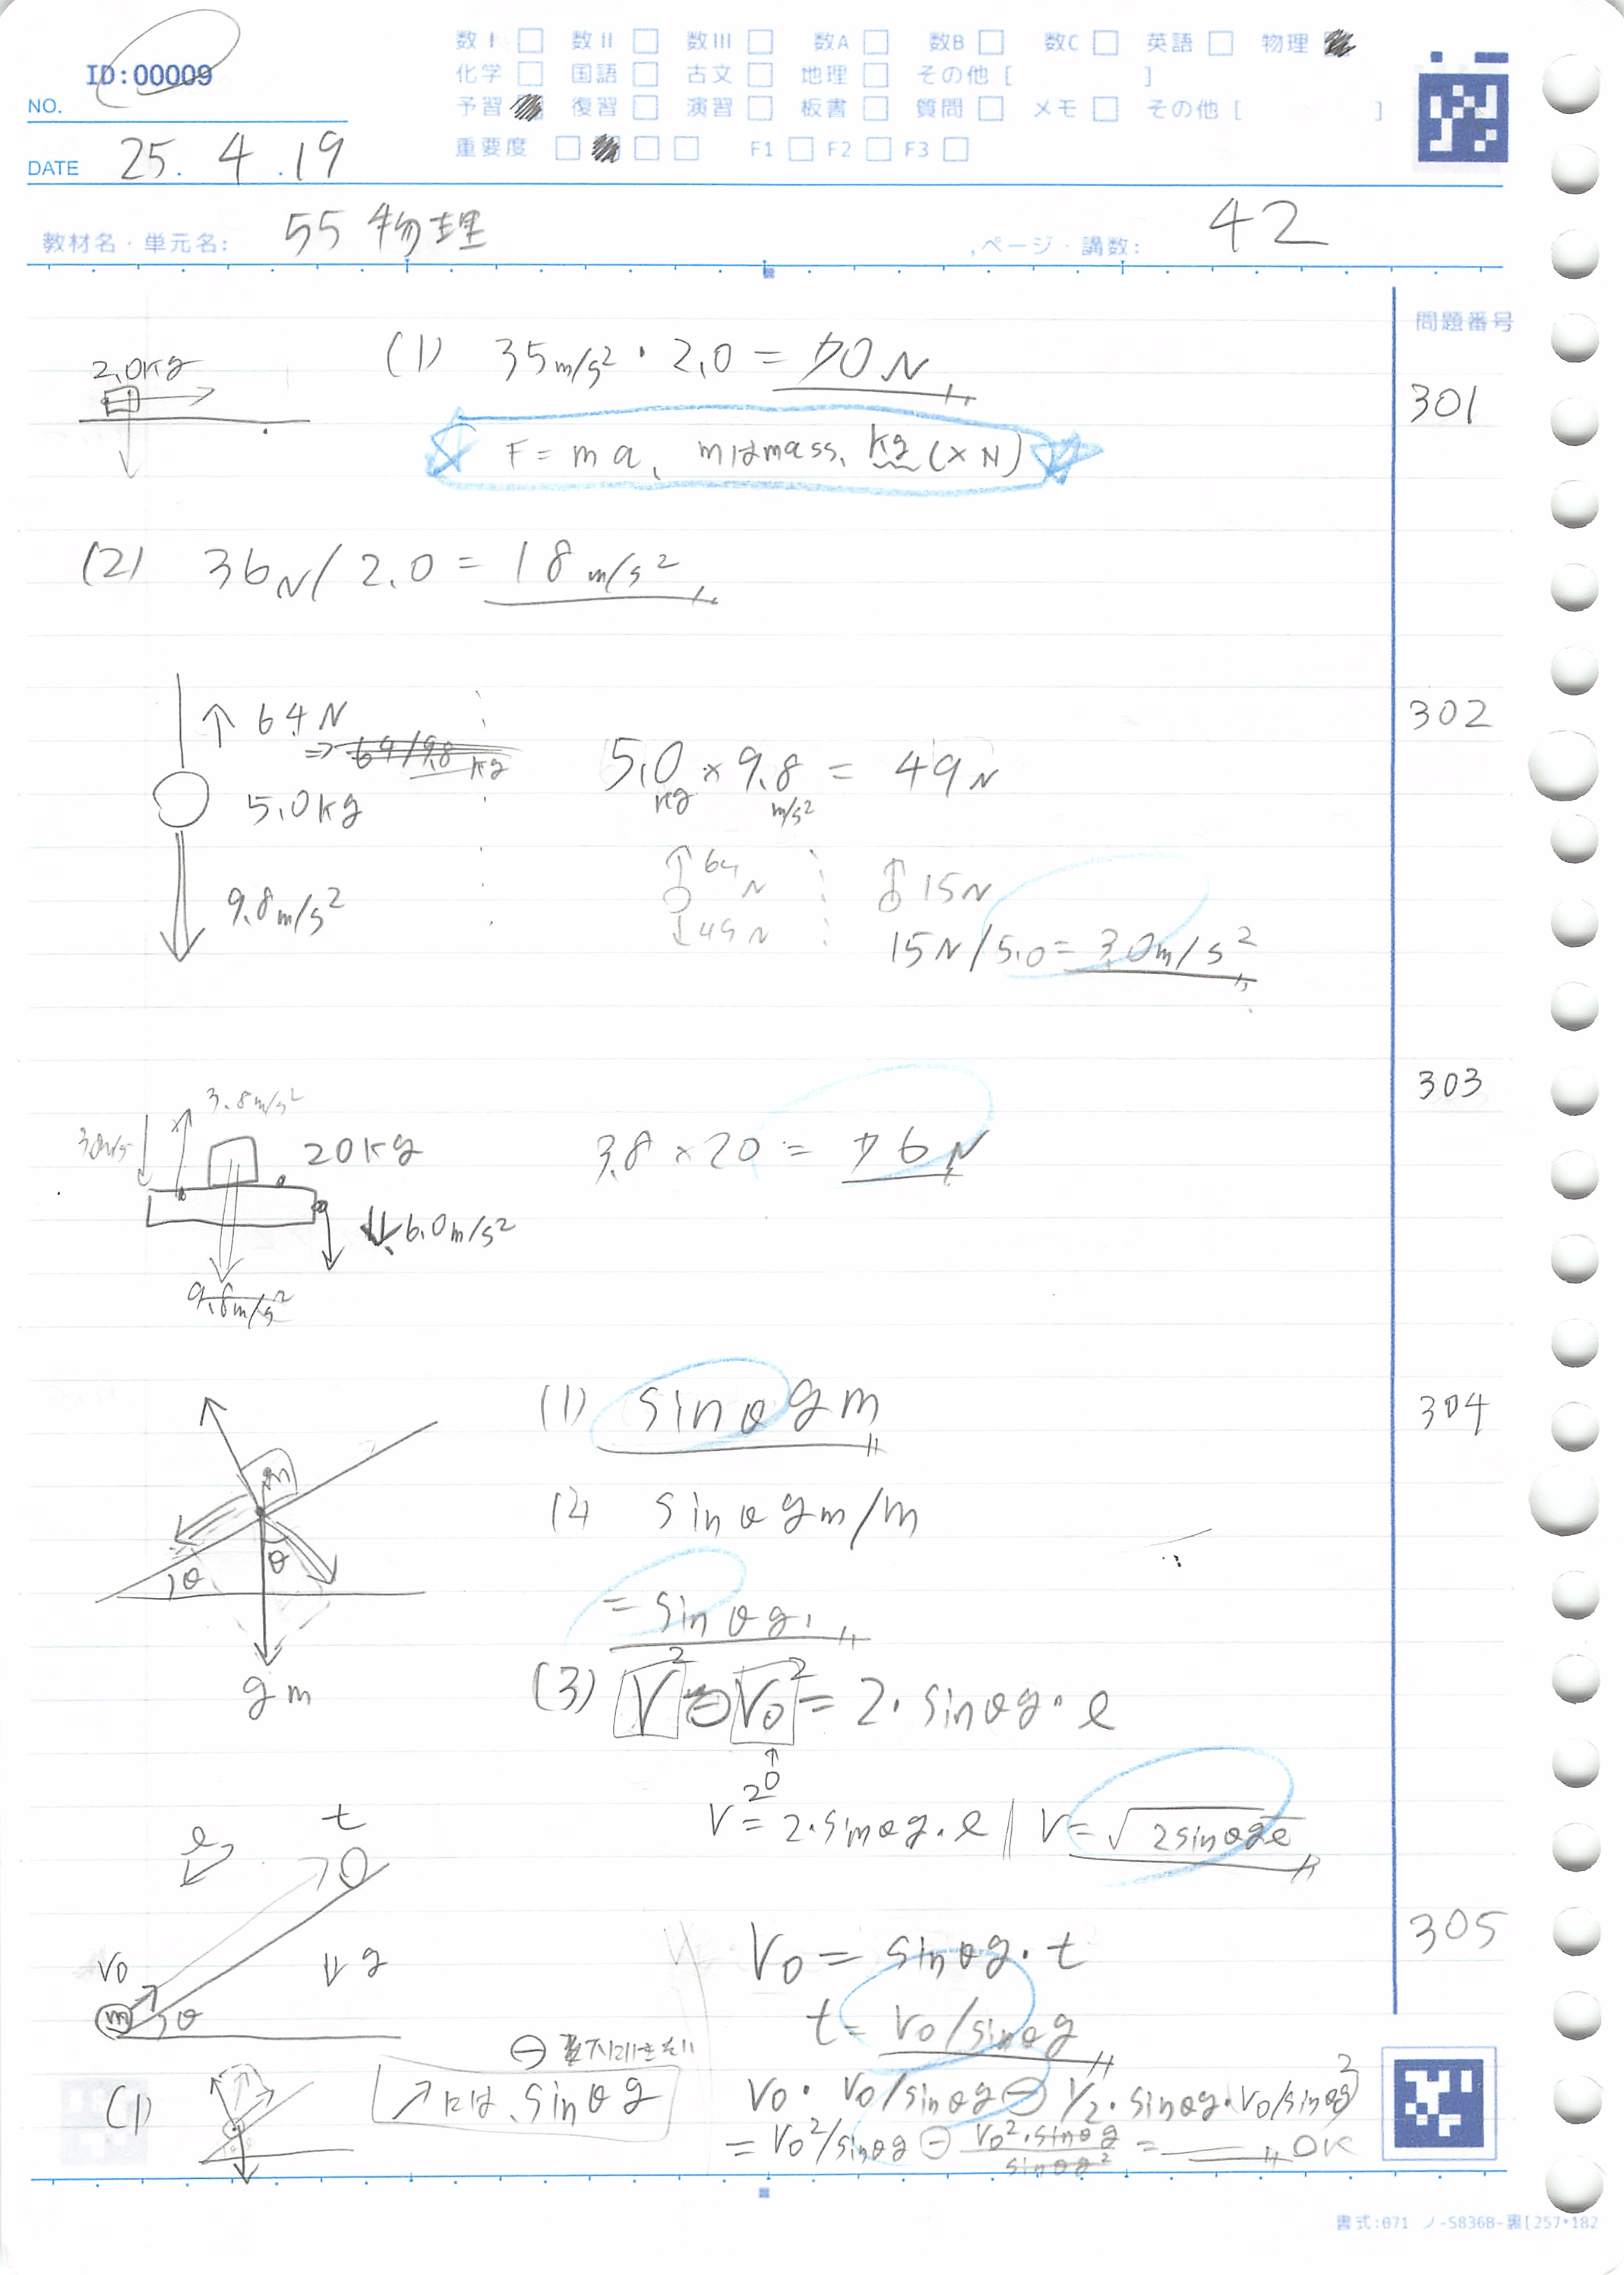 ID:00009
数I □ 数II □ 数III □ 数A □ 数B □ 数C □ 英語 □ 物理 ■
化学 □ 国語 □ 古文 □ 地理 □ その他 [ ]
NO.
予習 ■ 復習 □ 演習 □ 板書 □ 質問 □ メモ □ その他 [ ]
DATE 25. 4 .19
重要度 □ ■ □ □ F1 □ F2 □ F3 □
教材名・単元名: 55 物理
ページ・講数: 42
問題番号
301
2.0kg
(1) 35m/s²・2.0 = 70N
F=ma, mはmass, kg (×N)
(2) 36N/2.0 = 18m/s²
302
↑ 64N
⇒ 64/9.8 kg
5.0kg
9.8m/s²
5.0kg × 9.8m/s² = 49N
↑64N
↓49N
↑15N
15N/5.0 = 3.0m/s²
303
3.8m/s²
20kg
6.0m/s²
9.8m/s²
3.8 × 20 = 76N
304
m
θ
θ
gm
(1) sinθgm
(2) sinθgm/m
= sinθg
(3) V² ⊖ V₀² = 2・sinθg・ℓ
V = 2・sinθg・ℓ // V = √2sinθgℓ
305
t
ℓ
V₀
m
θ
g
V₀ = sinθg・t
t = V₀/sinθg
(1)
↗には、sinθg
V₀・V₀/sinθg ⊖ 1/2・sinθg・V₀/sinθg²
= V₀²/sinθg ⊖ V₀²・sinθg/sinθg² = OK
書式:071 ノ-S836B-裏[257*182